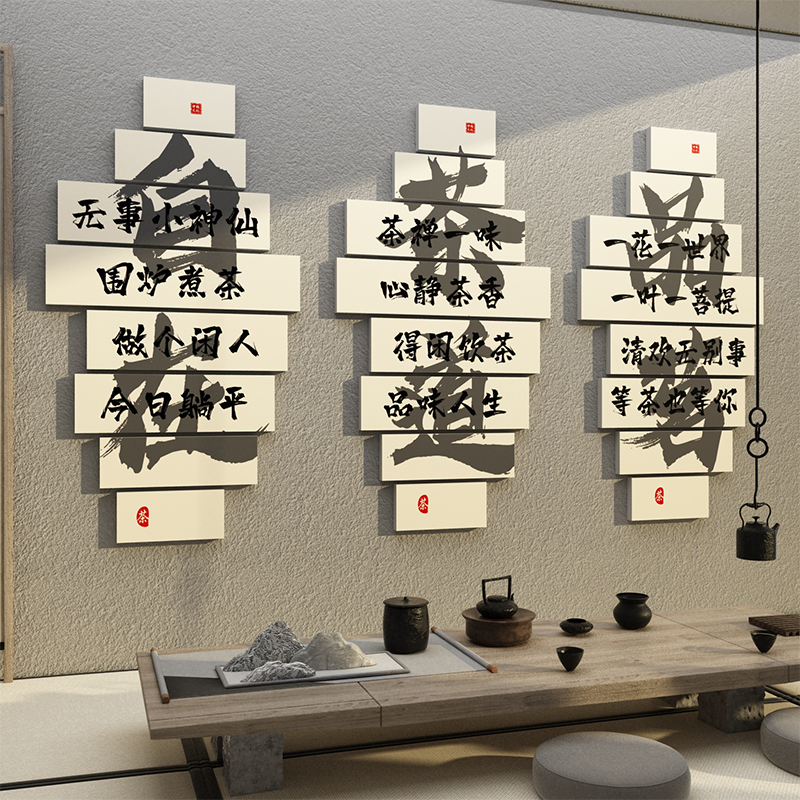 自在
无事小神仙
围炉煮茶
做个闲人
今日躺平
茶
茶道
茶禅一味
心静茶香
得闲饮茶
品味人生
茶
品茗
一花一世界
一叶一菩提
清欢无别事
等茶也等你
茶